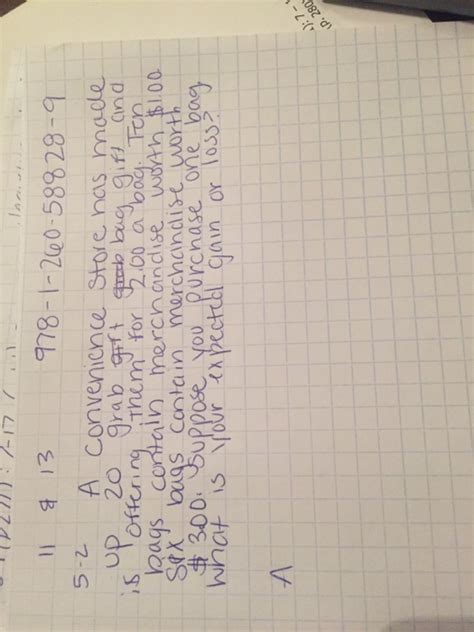 (p. 280)
11 & 13 978-1-260-58828-9
5-2 A convenience store has made
is up 20 grab bag gifts and
offering them for 2.00 a bag. Ten
bags contain merchandise worth $1.00
Six bags contain merchandise worth
$3.00. Suppose you purchase one bag
what is your expected gain or loss?
A